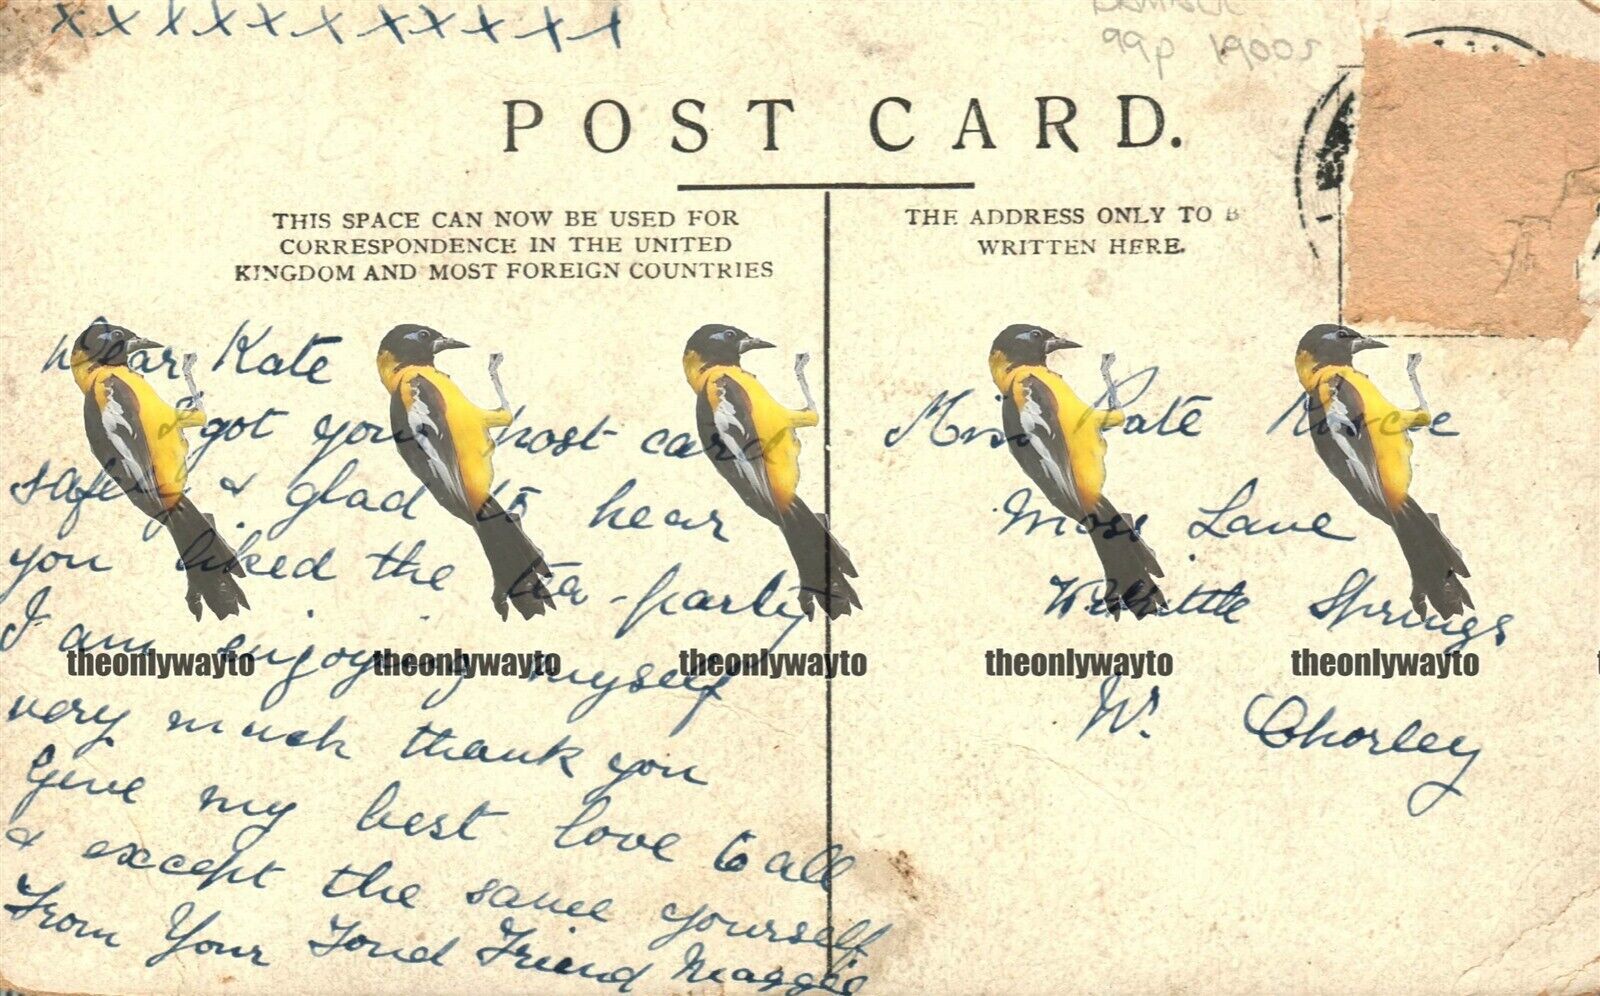 x x x x x x x x x x x x
99p 1900s
POST CARD.
THIS SPACE CAN NOW BE USED FOR
CORRESPONDENCE IN THE UNITED
KINGDOM AND MOST FOREIGN COUNTRIES
THE ADDRESS ONLY TO B
WRITTEN HERE.
Dear Kate
I got your post card
safely & glad to hear
you liked the tea-party
I am enjoying myself
very much thank you
Give my best love to all
& except the same yourself
From Your Fond Friend Maggie
Miss Kate
Moss Lane
Whittle Springs
Nr. Chorley
theonlywayto theonlywayto theonlywayto theonlywayto theonlywayto